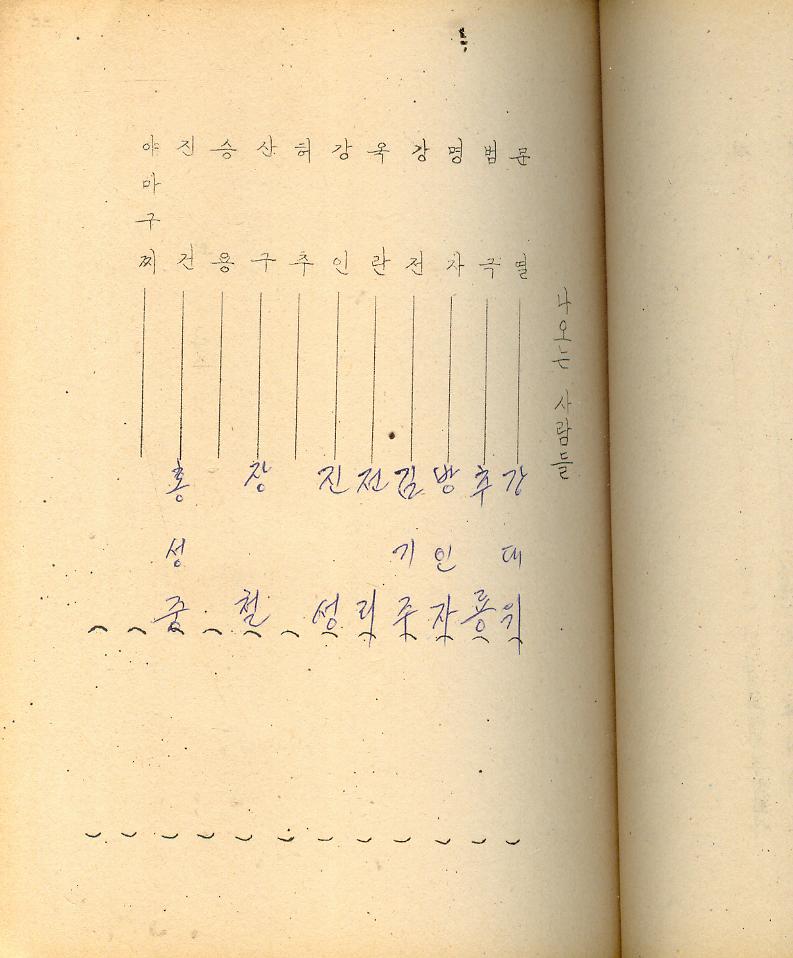 나오는 사람들
문열 강대위
범국 추룡
명자 방인자
강전 김기주
옥란 전리
강인 진성
허추
산구 장철
승용
진건 홍성중
야마구찌